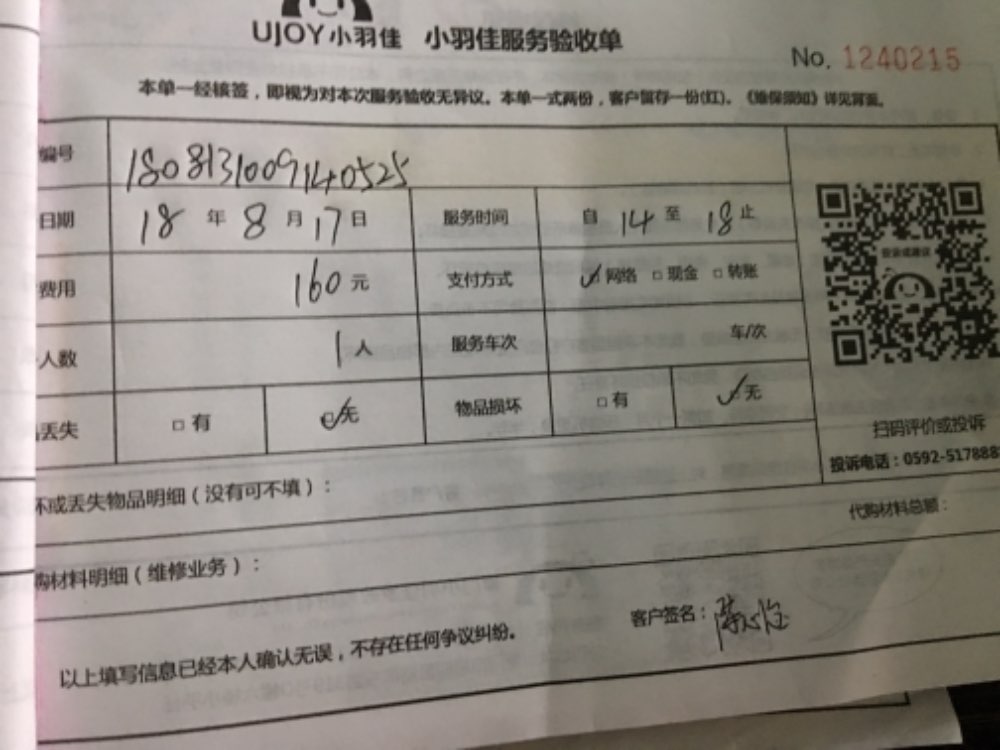 UJOY小羽佳 小羽佳服务验收单
No. 1240215
本单一经核签，即视为对本次服务验收无异议。本单一式两份，客户留存一份(红)。《维保须知》详见背面。
编号 1808131009140525
日期 18 年 8 月 17 日 服务时间 自 14 至 18 止
费用 160 元 支付方式 ☑网络 □现金 □转账
人数 1 人 服务车次 车/次
丢失 □有 ☑无 物品损坏 □有 ☑无
投诉或建议
扫码评价或投诉
投诉电话：0592-517888
坏或丢失物品明细（没有可不填）：
代购材料总额：
购材料明细（维修业务）：
客户签名：
以上填写信息已经本人确认无误，不存在任何争议纠纷。